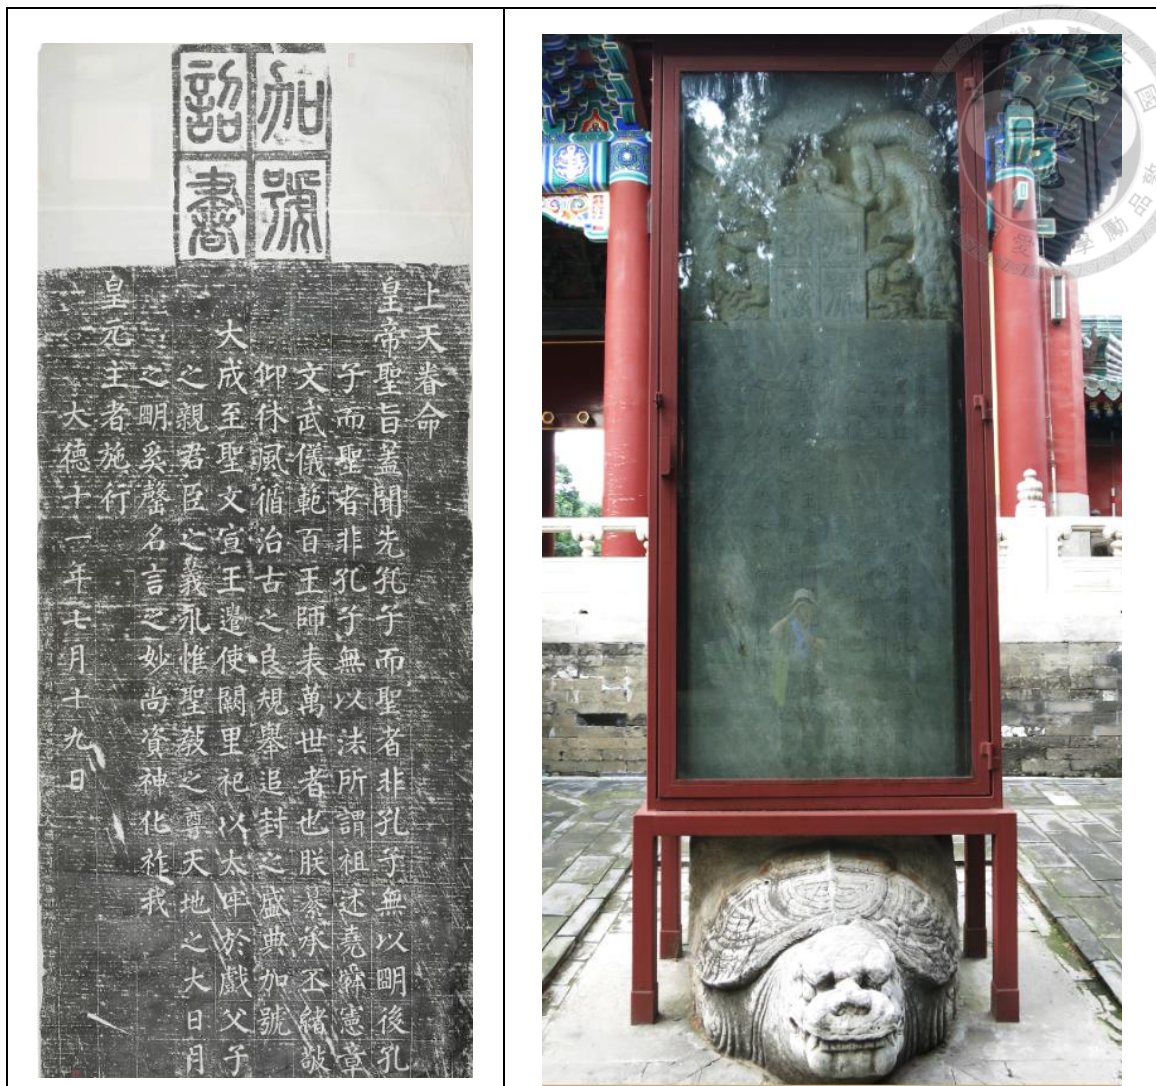 加號
詔書
上天眷命
皇帝聖旨蓋聞先孔子而聖者非孔子無以明後孔
子而聖者非孔子無以法所謂祖述堯舜憲章
文武儀範百王師表萬世者也朕纂承丕緒敬
仰休風循治古之良規舉追封之盛典加號
大成至聖文宣王遣使闕里祀以太牢於戲父子
之親君臣之義永惟聖教之尊天地之大日月
之明奚罄名言之妙尚資神化祚我
皇元主者施行
大德十一年七月十九日
敦品勵學